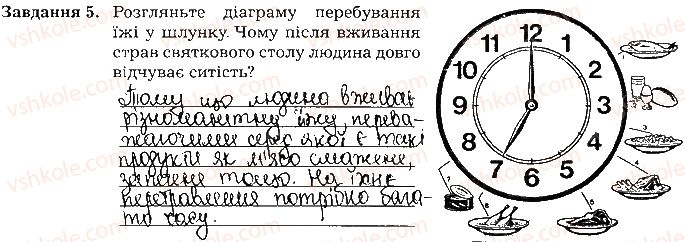 Завдання 5. Розгляньте діаграму перебування
їжі у шлунку. Чому після вживання
страв святкового столу людина довго
відчуває ситість?
Тому що людина вживає
різноманітну їжу, перева-
жаючими серед якої є такі
продукти як м'ясо смажене,
запечене тощо. На їхнє
перетравлення потрібно бага-
то часу.
12
1
2
3
4
5
6
7
8
9
10
11
vshkole.com